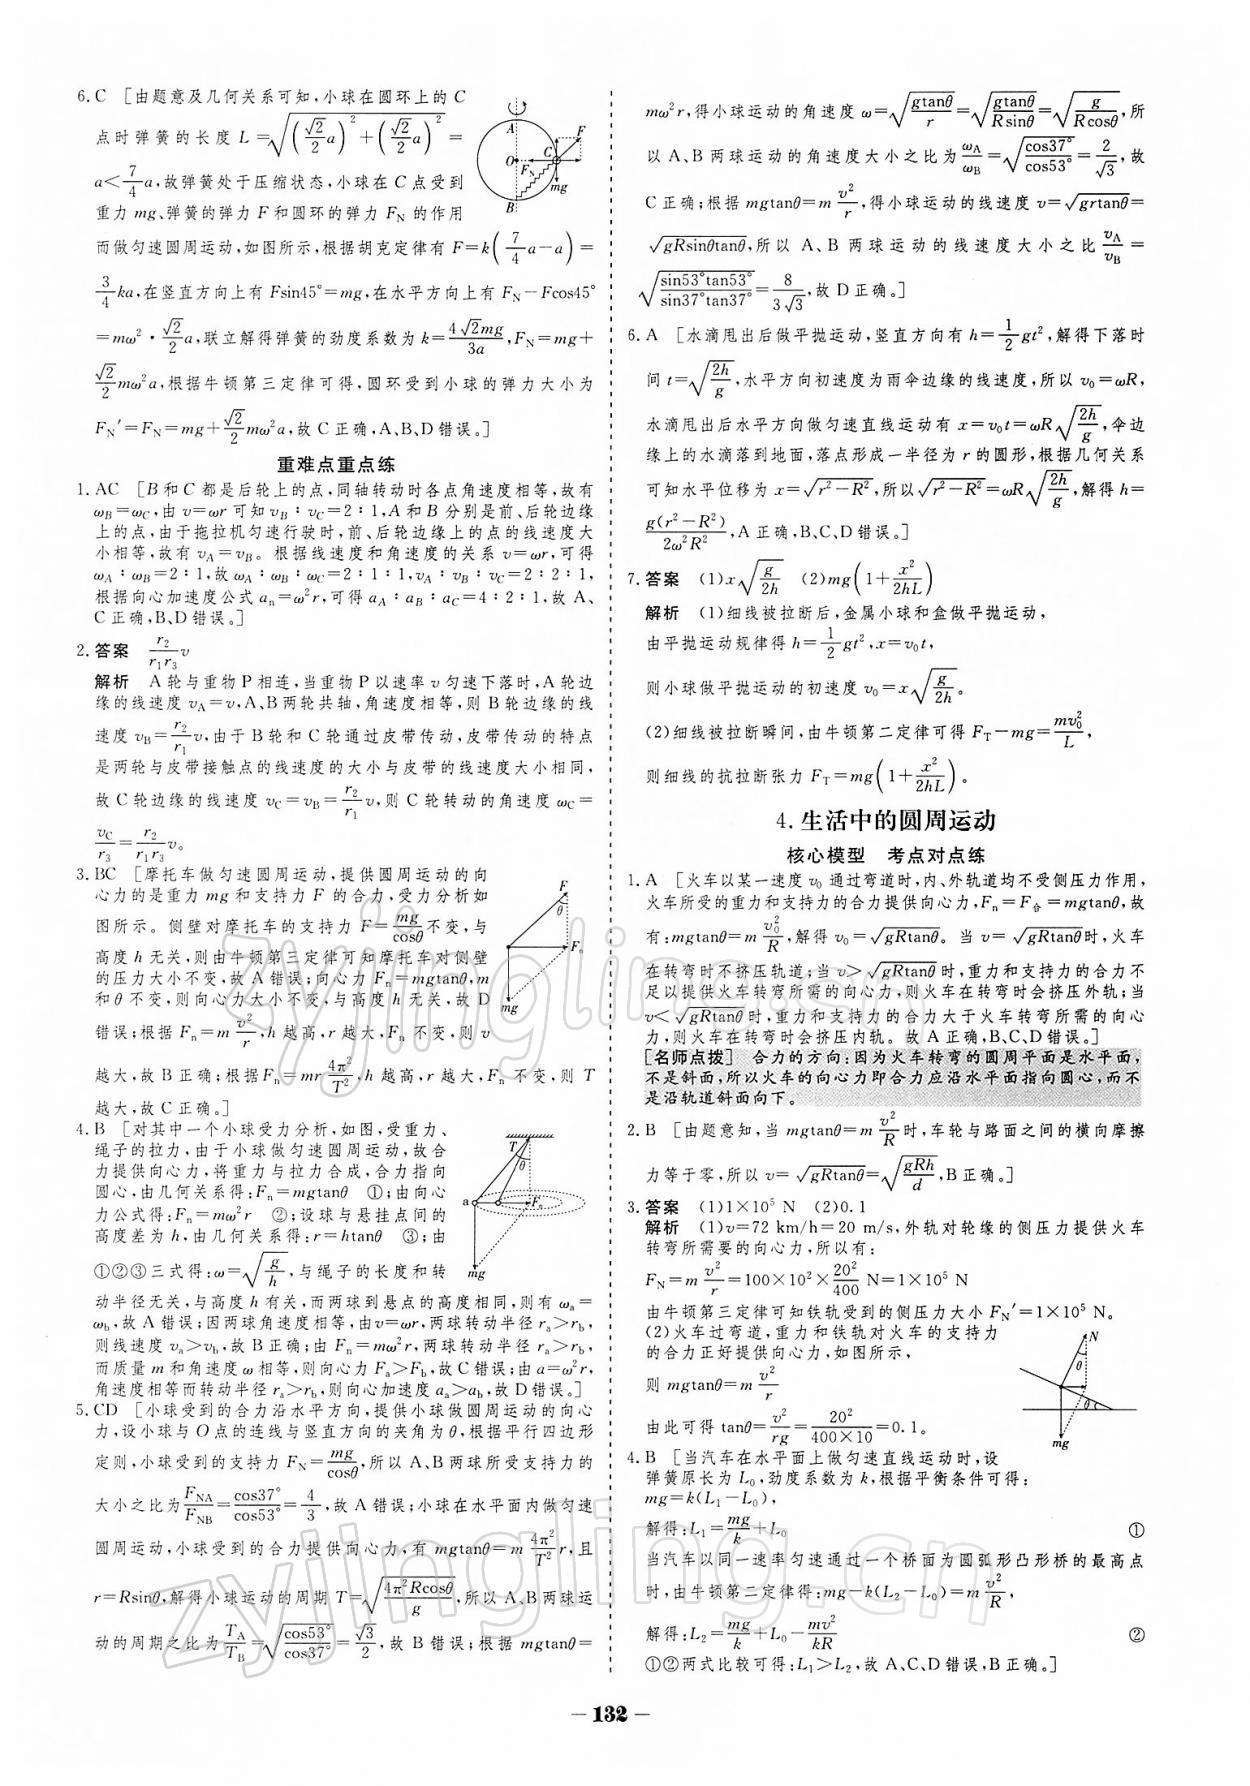 6. C [由题意及几何关系可知,小球在圆环上的 C
点时弹簧的长度 L=√((√2/2 a)²+(√2/2 a)²)=
a<7/4 a,故弹簧处于压缩状态,小球在 C 点受到
重力 mg、弹簧的弹力 F 和圆环的弹力 F_N 的作用
而做匀速圆周运动,如图所示,根据胡克定律有 F=k(7/4 a-a)=
3/4 ka,在竖直方向上有 Fsin45°=mg,在水平方向上有 F_N-Fcos45°
=mω²·√2/2 a,联立解得弹簧的劲度系数为 k=4√2mg/3a,F_N=mg+
√2/2 mω²a,根据牛顿第三定律可得,圆环受到小球的弹力大小为
F_N′=F_N=mg+√2/2 mω²a,故 C 正确,A、B、D 错误。]
A
O
B
C
F
F_N
mg
重难点重点练
1. AC [B 和 C 都是后轮上的点,同轴转动时各点角速度相等,故有
ω_B=ω_C,由 v=ωr 可知 v_B∶v_C=2∶1,A 和 B 分别是前、后轮边缘
上的点,由于拖拉机匀速行驶时,前、后轮边缘上的点的线速度大
小相等,故有 v_A=v_B。根据线速度和角速度的关系 v=ωr,可得
ω_A∶ω_B=2∶1,故 ω_A∶ω_B∶ω_C=2∶1∶1,v_A∶v_B∶v_C=2∶2∶1,
根据向心加速度公式 a_n=ω²r,可得 a_A∶a_B∶a_C=4∶2∶1,故 A、
C 正确,B、D 错误。]
2. 答案 r₂/r₁r₃ v
解析 A 轮与重物 P 相连,当重物 P 以速率 v 匀速下落时,A 轮边
缘的线速度 v_A=v,A、B 两轮共轴,角速度相等,则 B 轮边缘的线
速度 v_B=r₂/r₁ v,由于 B 轮和 C 轮通过皮带传动,皮带传动的特点
是两轮与皮带接触点的线速度的大小与皮带的线速度大小相同,
故 C 轮边缘的线速度 v_C=v_B=r₂/r₁ v,则 C 轮转动的角速度 ω_C=
v_C/r₃=r₂/r₁r₃ v。
3. BC [摩托车做匀速圆周运动,提供圆周运动的向
心力的是重力 mg 和支持力 F 的合力,受力分析如
图所示。侧壁对摩托车的支持力 F=mg/cosθ不变,与
高度 h 无关,则由牛顿第三定律可知摩托车对侧壁
的压力大小不变,故 A 错误;向心力 F_n=mgtanθ,m
和 θ 不变,则向心力大小不变,与高度 h 无关,故 D
错误;根据 F_n=m v²/r,h 越高,r 越大,F_n 不变,则 v
越大,故 B 正确;根据F_n=mr 4π²/T²,h 越高,r 越大,F_n 不变,则 T
越大,故 C 正确。]
F
θ
F_n
mg
4. B [对其中一个小球受力分析,如图,受重力、
绳子的拉力,由于小球做匀速圆周运动,故合
力提供向心力,将重力与拉力合成,合力指向
圆心,由几何关系得:F_n=mgtanθ ①;由向心
力公式得:F_n=mω²r ②;设球与悬挂点间的
高度差为 h,由几何关系得:r=htanθ ③;由
①②③三式得:ω=√(g/h),与绳子的长度和转
动半径无关,与高度 h 有关,而两球到悬点的高度相同,则有 ω_a=
ω_b,故 A 错误;因两球角速度相等,由v=ωr,两球转动半径 r_a>r_b,
则线速度 v_a>v_b,故 B 正确;由 F_n=mω²r,两球转动半径 r_a>r_b,
而质量 m 和角速度 ω 相等,则向心力 F_a>F_b,故 C 错误;由 a=ω²r,
角速度相等而转动半径 r_a>r_b,则向心加速度 a_a>a_b,故 D 错误。]
T
θ
a
F_n
mg
5. CD [小球受到的合力沿水平方向,提供小球做圆周运动的向心
力,设小球与 O 点的连线与竖直方向的夹角为 θ,根据平行四边形
定则,小球受到的支持力 F_N=mg/cosθ,所以 A、B 两球所受支持力的
大小之比为F_NA/F_NB=cos37°/cos53°=4/3,故 A 错误;小球在水平面内做匀速
圆周运动,小球受到的合力提供向心力,有 mgtanθ=m 4π²/T² r,且
r=Rsinθ,解得小球运动的周期 T=√(4π²Rcosθ/g),所以 A、B 两球运
动的周期之比为T_A/T_B=√(cos53°/cos37°)=√3/2,故 B 错误;根据 mgtanθ=
mω²r,得小球运动的角速度 ω=√(gtanθ/r)=√(gtanθ/Rsinθ)=√(g/Rcosθ),所
以 A、B 两球运动的角速度大小之比为ω_A/ω_B=√(cos37°/cos53°)=2/√3,故
C 正确;根据 mgtanθ=m v²/r,得小球运动的线速度 v=√(grtanθ)=
√(gRsinθtanθ),所以 A、B 两球运动的线速度大小之比 v_A/v_B=
√(sin53°tan53°/sin37°tan37°)=8/3√3,故 D 正确。]
6. A [水滴甩出后做平抛运动,竖直方向有 h=1/2 gt²,解得下落时
间 t=√(2h/g),水平方向初速度为雨伞边缘的线速度,所以 v₀=ωR,
水滴甩出后水平方向做匀速直线运动有 x=v₀t=ωR√(2h/g),伞边
缘上的水滴落到地面,落点形成一半径为 r 的圆形,根据几何关系
可知水平位移为 x=√(r²-R²),所以√(r²-R²)=ωR√(2h/g),解得 h=
g(r²-R²)/2ω²R²,A 正确,B、C、D 错误。]
7. 答案 (1)x√(g/2h) (2)mg(1+x²/2hL)
解析 (1)细线被拉断后,金属小球和盒做平抛运动,
由平抛运动规律得 h=1/2 gt²,x=v₀t,
则小球做平抛运动的初速度 v₀=x√(g/2h)。
(2)细线被拉断瞬间,由牛顿第二定律可得 F_T-mg=mv₀²/L,
则细线的抗拉断张力 F_T=mg(1+x²/2hL)。
4. 生活中的圆周运动
核心模型 考点对点练
1. A [火车以某一速度 v₀ 通过弯道时,内、外轨道均不受侧压力作用,
火车所受的重力和支持力的合力提供向心力,F_n=F_合=mgtanθ,故
有:mgtanθ=m v₀²/R,解得 v₀=√(gRtanθ)。当 v=√(gRtanθ)时,火车
在转弯时不挤压轨道;当 v>√(gRtanθ)时,重力和支持力的合力不
足以提供火车转弯所需的向心力,则火车在转弯时会挤压外轨;当
v<√(gRtanθ)时,重力和支持力的合力大于火车转弯所需的向心
力,则火车在转弯时会挤压内轨。故 A 正确,B、C、D 错误。]
[名师点拨] 合力的方向:因为火车转弯的圆周平面是水平面,
不是斜面,所以火车的向心力即合力应沿水平面指向圆心,而不
是沿轨道斜面向下。
2. B [由题意知,当 mgtanθ=m v²/R时,车轮与路面之间的横向摩擦
力等于零,所以 v=√(gRtanθ)=√(gRh/d),B 正确。]
3. 答案 (1)1×10⁵ N (2)0.1
解析 (1)v=72 km/h=20 m/s,外轨对轮缘的侧压力提供火车
转弯所需要的向心力,所以有:
F_N=m v²/r=100×10²×20²/400 N=1×10⁵ N
由牛顿第三定律可知铁轨受到的侧压力大小 F_N′=1×10⁵ N。
(2)火车过弯道,重力和铁轨对火车的支持力
的合力正好提供向心力,如图所示,
则 mgtanθ=m v²/r
由此可得 tanθ=v²/rg=20²/400×10=0.1。
N
θ
θ
mg
4. B [当汽车在水平面上做匀速直线运动时,设
弹簧原长为 L₀,劲度系数为 k,根据平衡条件可得:
mg=k(L₁-L₀),
解得:L₁=mg/k+L₀ ①
当汽车以同一速率匀速通过一个桥面为圆弧形凸形桥的最高点
时,由牛顿第二定律得:mg-k(L₂-L₀)=m v²/R,
解得:L₂=mg/k+L₀-mv²/kR ②
①②两式比较可得:L₁>L₂,故 A、C、D 错误,B 正确。]
— 132 —
zyjingling.cn
zyjingling.cn